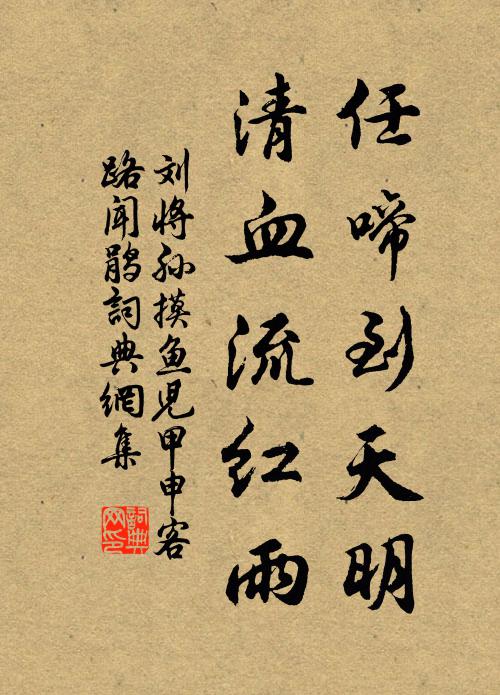 任啼到天明
清血流红雨
刘将孙摸鱼児甲申客
路闻鹃詞典網集
詞典
网印